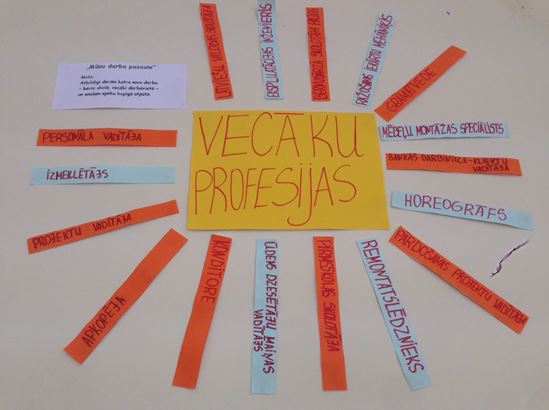 "Mūsu darba pasaule"
Moto:
Atbildīgi darām katrs savu darbu
- bērni skolā, vecāki darbavietā -
un smeļam spēku kopīgā atpūtā.
VECĀKU
PROFESIJAS
LATVIEŠU VALODAS SKOLOTĀJA
EKSPLUATĀCIJAS INŽENIERIS
RAŽOŠANAS IEKĀRTU MEHĀNIĶIS
GRĀMATVEDE
MĒBEĻU MONTĀŽAS SPECIĀLISTS
BANKAS DARBINIECE-KLIENTU
VADĪTĀJA
HOREOGRĀFS
PĀRDOŠANAS PROJEKTU VADĪTĀJA
REMONTATSLĒDZNIEKS
PIRMSSKOLAS SKOLOTĀJA
ŪDENS DZESĒTĀJU MAIŅAS
VADĪTĀJS
KONDITORE
APKOPĒJA
PROJEKTU VADĪTĀJA
IZMEKLĒTĀJS
PERSONĀLA VADĪTĀJA